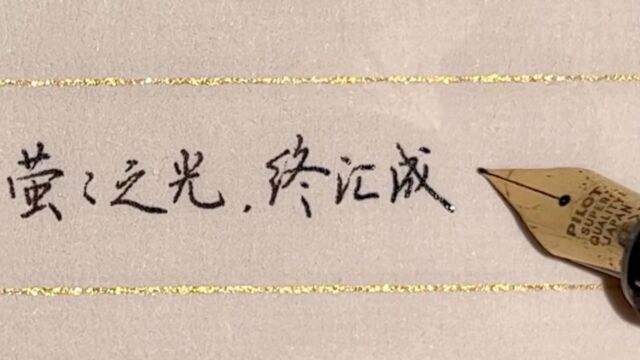 萤々之光，终汇成
PILOT
SUPER
QUALITY
JAPAN